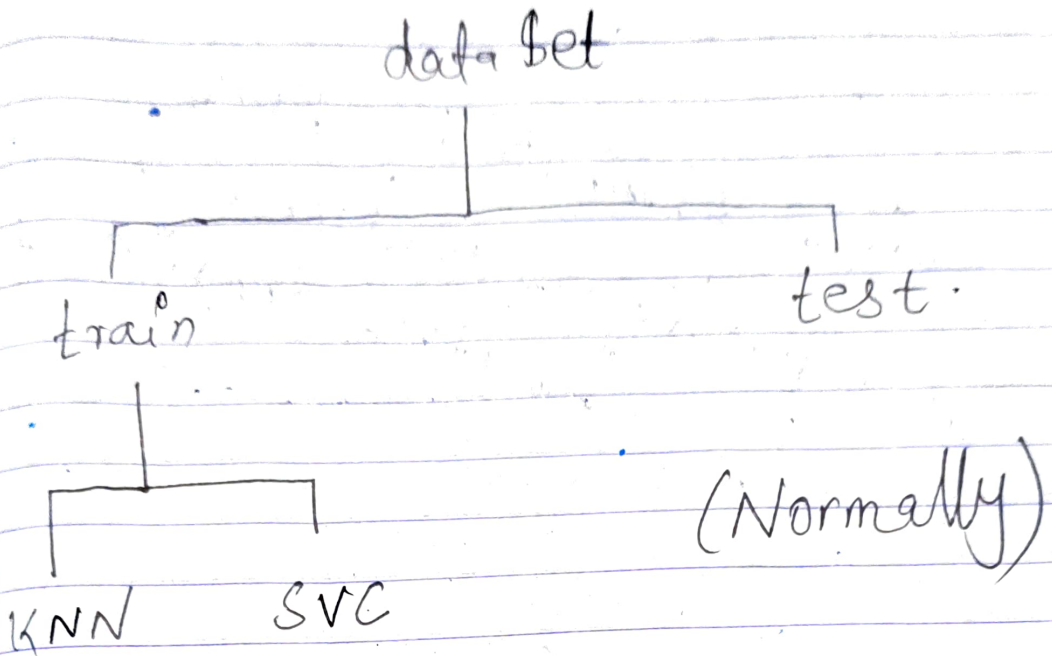 data set
train
test.
(Normally)
KNN
SVC